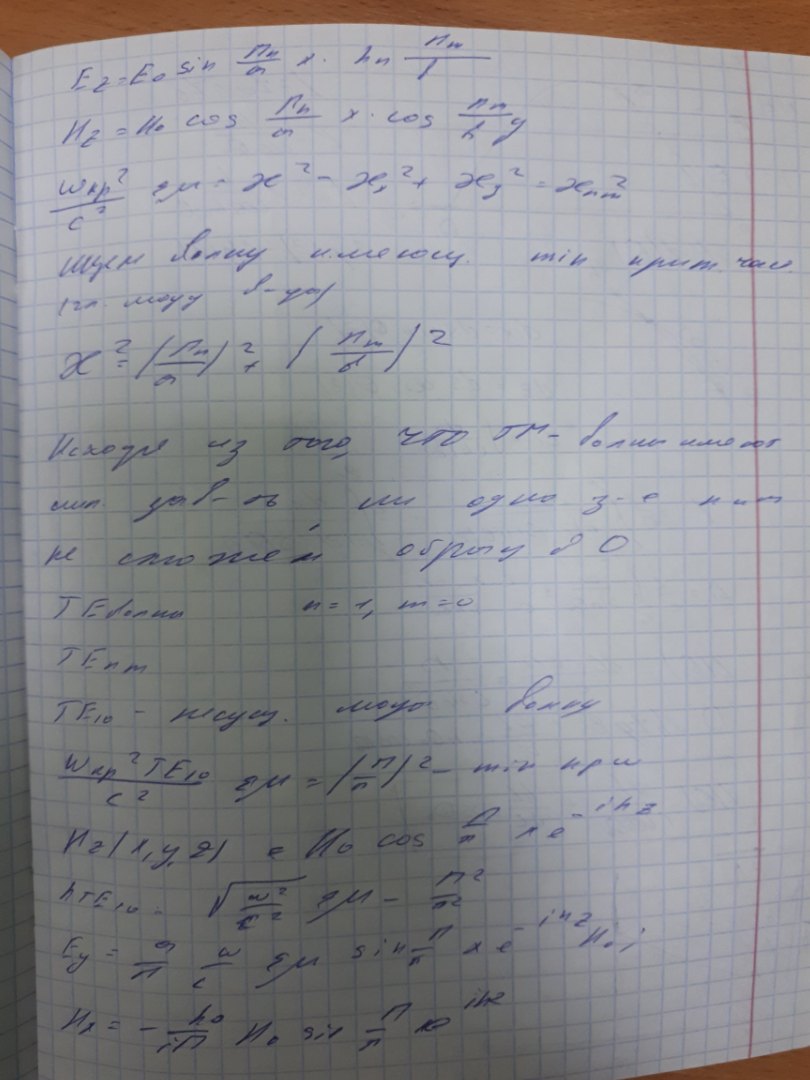 E_z = E_0 sin πn/a x · sin πm/b
H_z = H_0 cos πn/a x · cos πm/b y
ω_кр²/c² εμ = ϰ² = ϰ_x² + ϰ_y² = ϰ_nm²
Ищем волну имеющ. min крит. час
(гл. моду в-да)
ϰ² = (πn/a)² + (πm/b)²
Исходя из того, что TM-волны имеют
ни одно n и m
не сможем 0
TE волны n=1, m=0
TE_nm
TE_10 - несущ. мода волны
ω_кр² TE_10/c² εμ = (π/a)² - min при
H_z(x,y,z) = H_0 cos π/a x e^{-ihz}
h_TE_10 = √(ω²/c²) εμ - π²/a²
E_y = a/π ω/c εμ sin π/a x e^{-ihz} H_0 i
H_x = - ha/iπ H_0 sin π/a x e^{ihz}